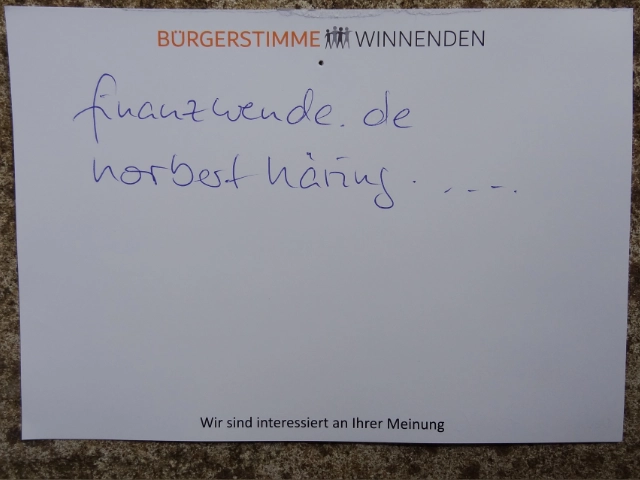 BÜRGERSTIMME WINNENDEN
finanzwende.de
norbert häring. . - - - .
Wir sind interessiert an Ihrer Meinung